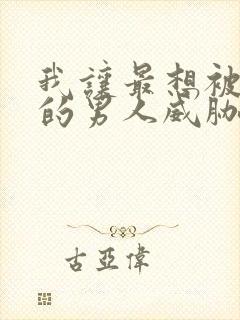 我讓最想被
的男人威脅
古亞偉